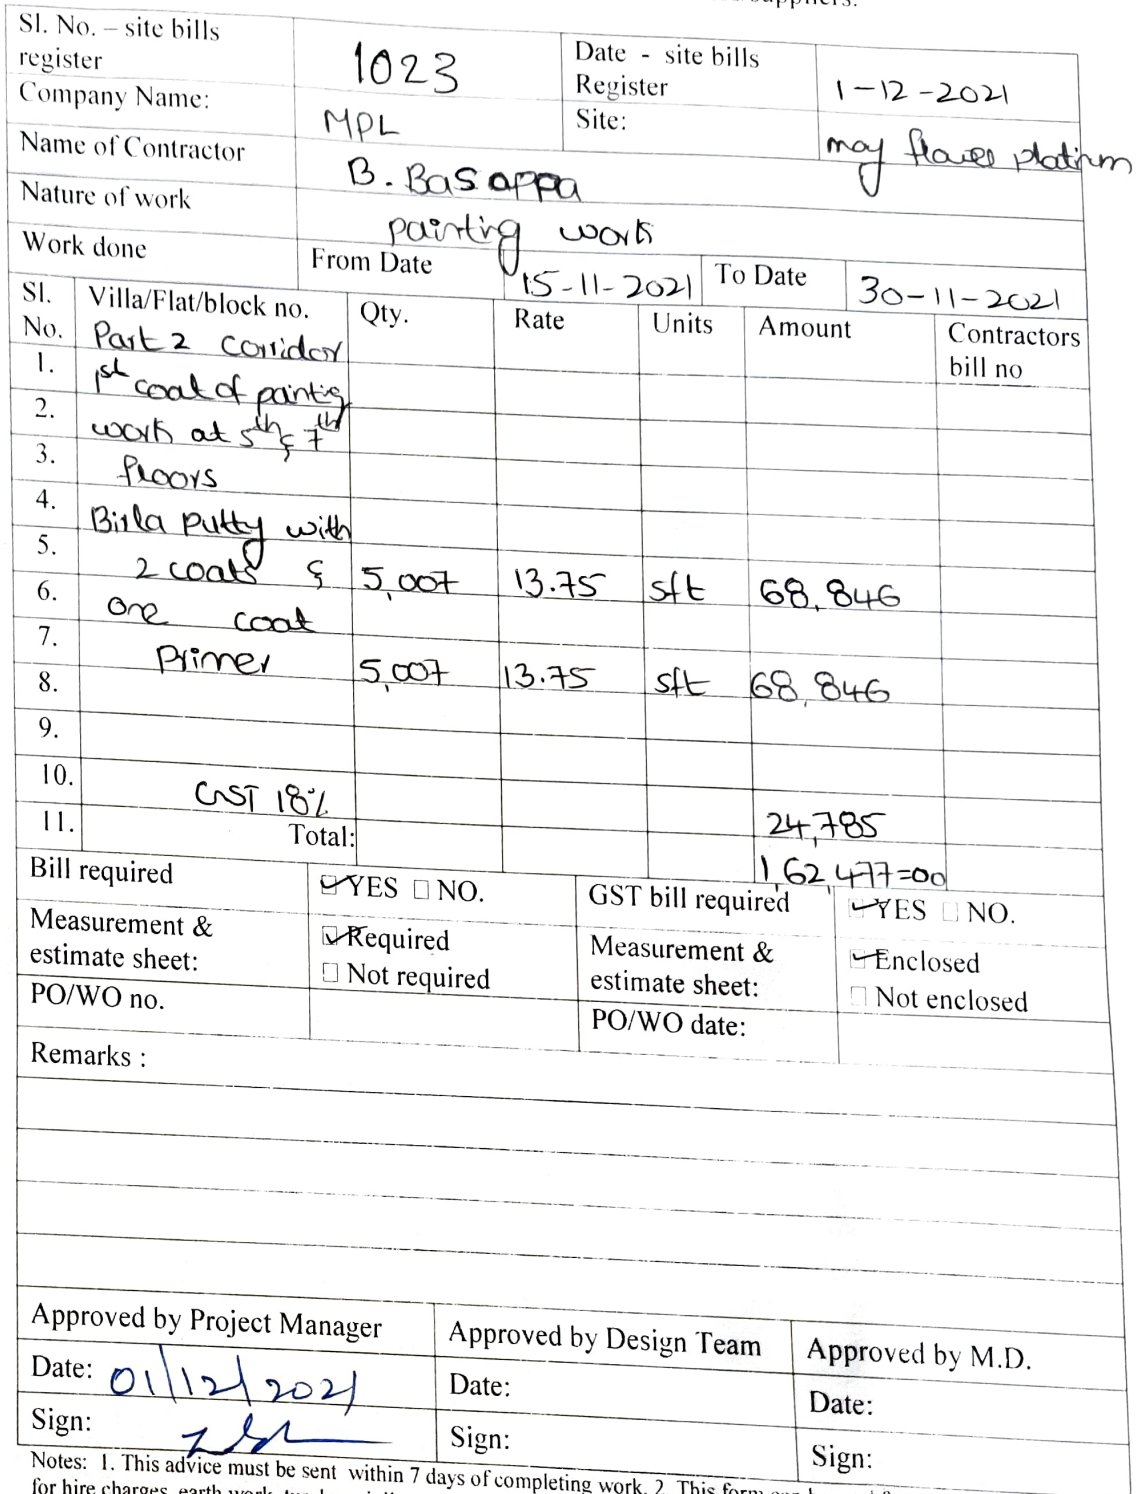 suppliers.
Sl. No. – site bills register 1023 Date - site bills Register 1-12-2021
Company Name: MPL Site: may flower platinum
Name of Contractor B. Basappa
Nature of work painting work
Work done From Date 15-11-2021 To Date 30-11-2021
Sl. No. Villa/Flat/block no. Qty. Rate Units Amount Contractors bill no
Part 2 corridor
1. 1st coat of painting
2. work at 5th & 7th
3. floors
4. Birla putty with
5. 2 coats & 5,007 13.75 sft 68,846
6. one coat
7. Primer 5,007 13.75 sft 68,846
8.
9.
10. GST 18% 24,785
11. Total: 1,62,477=00
Bill required ☑ YES □ NO. GST bill required ☑ YES □ NO.
Measurement & estimate sheet: ☑ Required □ Not required Measurement & estimate sheet: ☑ Enclosed □ Not enclosed
PO/WO no. PO/WO date:
Remarks :
Approved by Project Manager Approved by Design Team Approved by M.D.
Date: 01/12/2021 Date: Date:
Sign: Sign: Sign:
Notes: 1. This advice must be sent within 7 days of completing work. 2. This form
for hire charges, earth work,